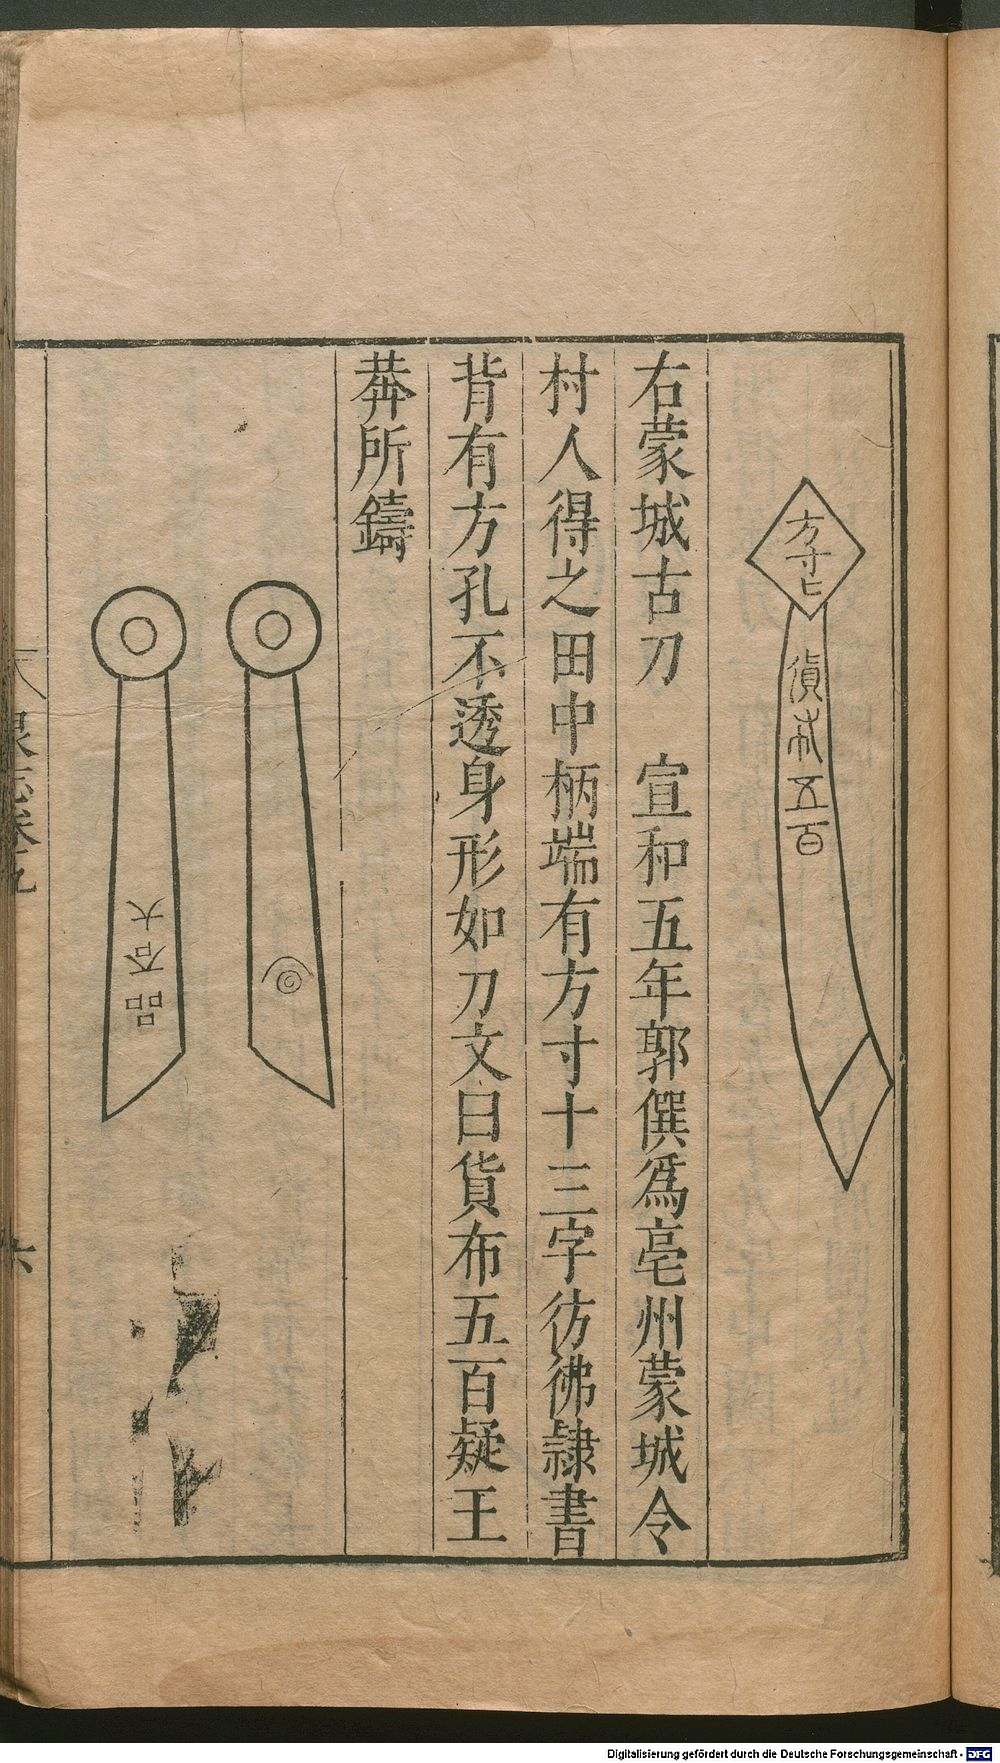 方寸匕
貨布五百
右蒙城古刀　宣和五年郭僎爲亳州蒙城令
村人得之田中柄端有方寸十三字彷彿隷書
背有方孔不透身形如刀文曰貨布五百疑王
莽所鑄
泉志卷九
六
Digitalisierung gefördert durch die Deutsche Forschungsgemeinschaft - DFG